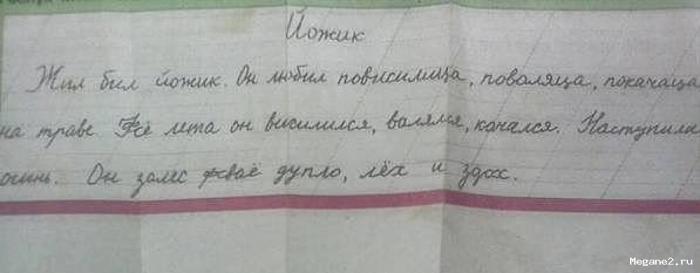 Йожик
Жил бил йожик. Он любил повисилица, поваляца, покачаца
на траве. Всё лета он висилился, валялся, качался. Наступила
осинь. Он залес фсваё дупло, лёх и здох.
Megane2.ru